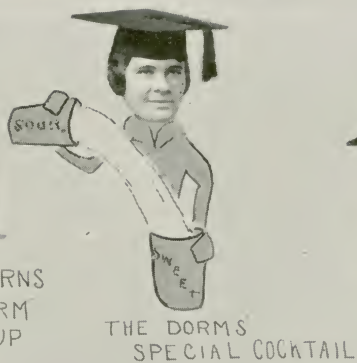 SOUR
SWEET
RNS
RM
UP
THE DORMS
SPECIAL COCKTAIL